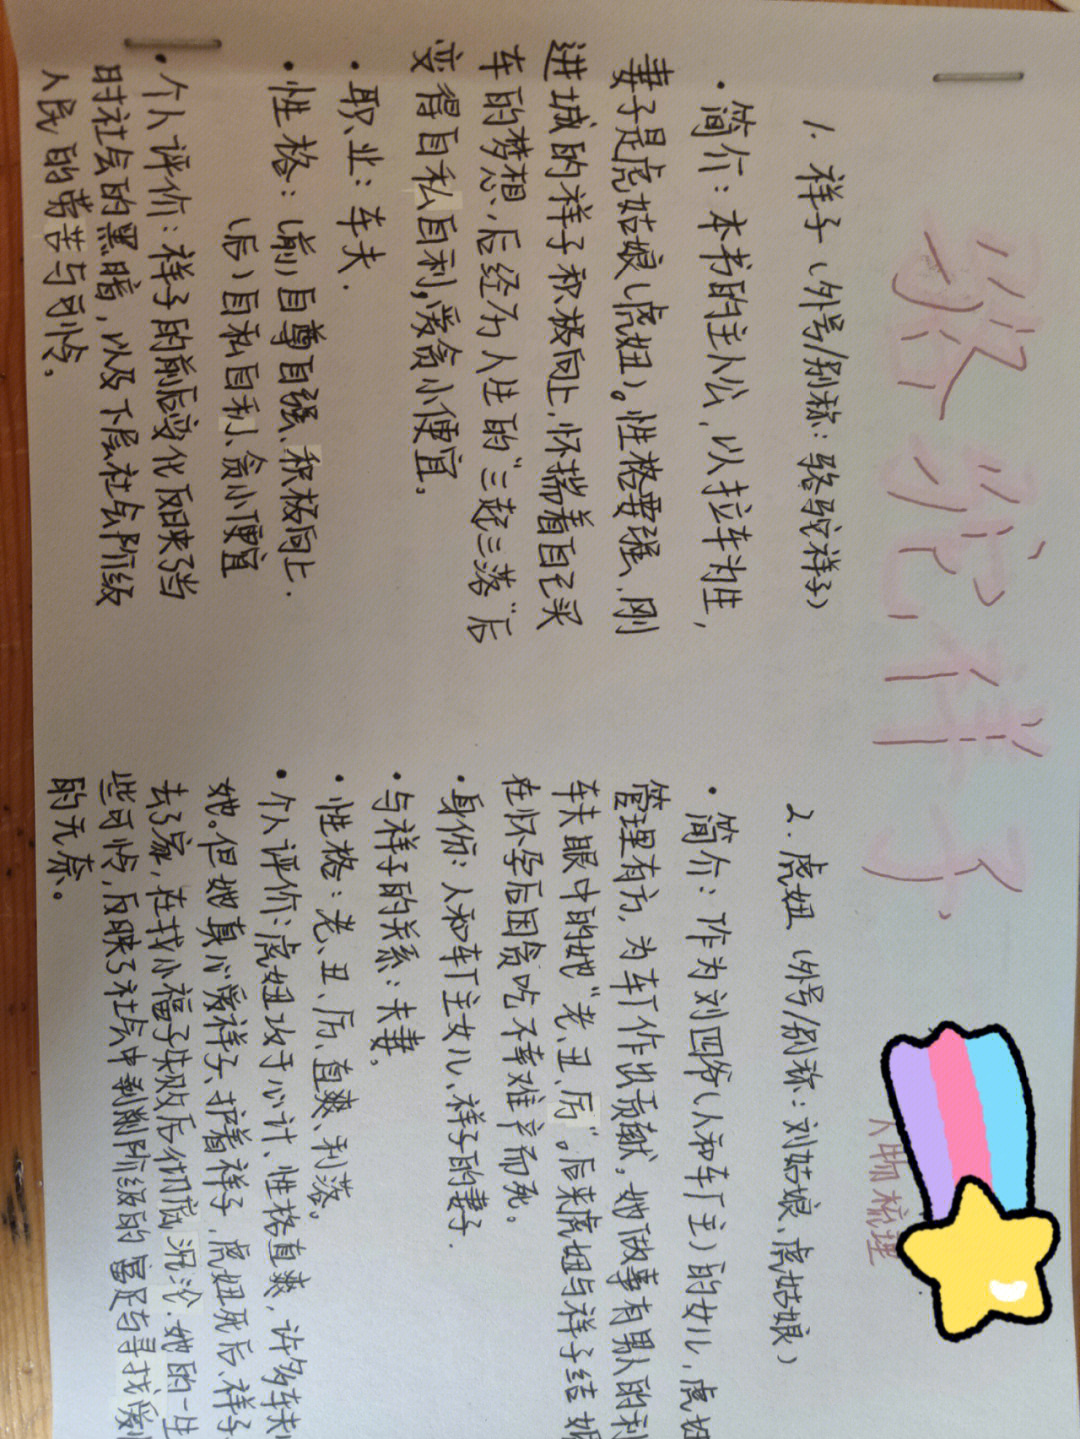 骆驼祥子
人物梳理
1. 祥子（外号/别称：骆驼祥子）
·简介：本书的主人公，以拉车为生，
妻子是虎姑娘（虎妞）。性格要强、刚
进城的祥子积极向上，怀揣着自己买
车的梦想，后经历人生的“三起三落”后
变得自私自利，爱贪小便宜。
·职业：车夫.
·性格：（前）自尊自强、积极向上.
（后）自私自利、贪小便宜
·个人评价：祥子的前后变化反映了当
时社会的黑暗，以及下层社会阶级
人民的劳苦与可怜。
2. 虎妞（外号/别称：刘姑娘、虎姑娘）
·简介：作为刘四爷（人和车厂主）的女儿，虎妞
管理有方，为车厂作以贡献，她做事有男人的利
车夫眼中的她“老、丑、厉”。后来虎妞与祥子结婚
在怀孕后因贪吃不幸难产而死。
·身份：人和车厂主女儿、祥子的妻子.
·与祥子的关系：夫妻。
·性格：老、丑、厉、直爽、利落。
·个人评价：虎妞攻于心计、性格直爽，许多车夫
她。但她真心爱祥子、护着祥子，虎妞死后、祥子
去了家，在找小福子失败后彻底沉沦.她的一生
些可怜，反映了社会中剥削阶级的富足与寻找爱
的无奈。